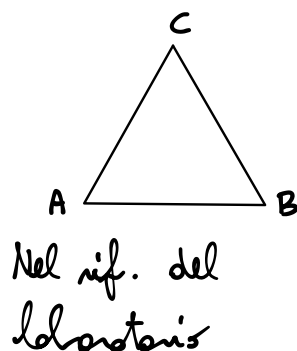 C
A B
Nel rif. del
laboratorio